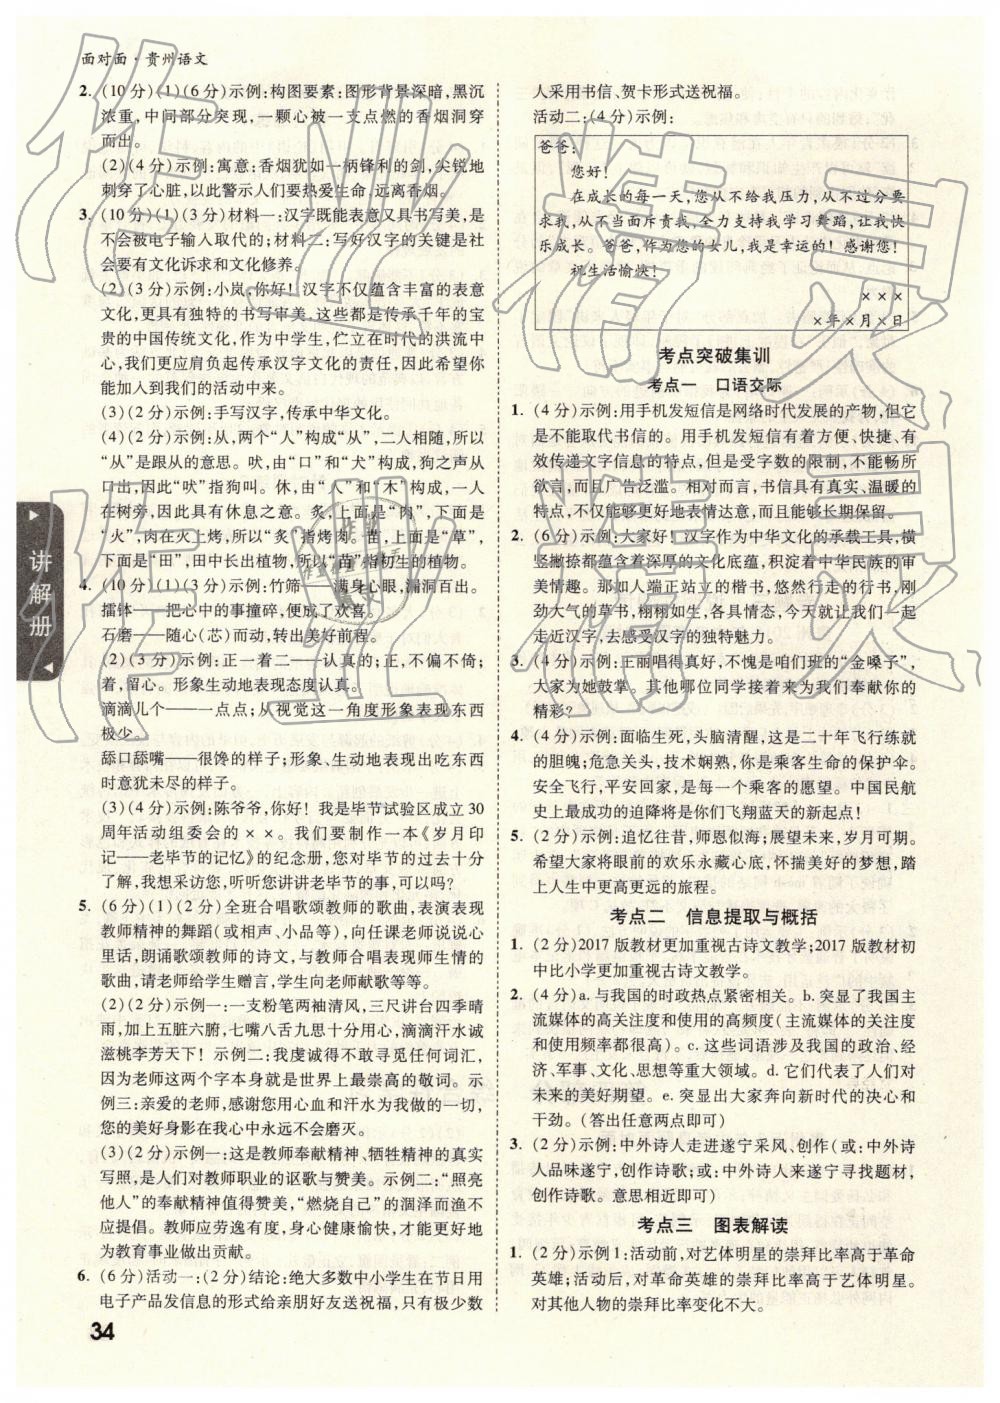 面对面·贵州语文
2. (10分)(1)(6分)示例:构图要素:图形背景深暗,黑沉
浓重,中间部分突现,一颗心被一支点燃的香烟洞穿
而出。
(2)(4分)示例:寓意:香烟犹如一柄锋利的剑,尖锐地
刺穿了心脏,以此警示人们要热爱生命,远离香烟。
3. (10分)(1)(3分)材料一:汉字既能表意又具书写美,是
不会被电子输入取代的;材料二:写好汉字的关键是社
会要有文化诉求和文化修养。
(2)(3分)示例:小岚,你好!汉字不仅蕴含丰富的表意
文化,更具有独特的书写审美,这些都是传承千年的宝
贵的中国传统文化,作为中学生,伫立在时代的洪流中
心,我们更应肩负起传承汉字文化的责任,因此希望你
能加入到我们的活动中来。
(3)(2分)示例:手写汉字,传承中华文化。
(4)(2分)示例:从,两个“人”构成“从”,二人相随,所以
“从”是跟从的意思。吠,由“口”和“犬”构成,狗之声从
口出,因此“吠”指狗叫。休,由“人”和“木”构成,一人
在树旁,因此具有休息义。炙,上面是“肉”,下面是
“火”,肉在火上烤,所以“炙”指烤肉。苗,上面是“草”,
下面是“田”,田中长出植物,所以“苗”指初生的植物。
4. (10分)(1)(4分)示例:竹筛——满身心眼,漏洞百出。
擂钵——把心中的事撞碎,便成了欢喜。
石磨——随心(芯)而动,转出美好前程。
(2)(4分)示例:正一着二——认真的;正,不偏不倚;
着,留心。形象生动地表现态度认真。
滴滴儿个——一点点;从视觉这一角度形象表现东西
极少。
舔口舔嘴——很馋的样子;形象、生动地表现出吃东西
时意犹未尽的样子。
(3)(2分)示例:陈爷爷,你好!我是毕节试验区成立30
周年活动组委会的××。我们要制作一本《岁月印
记——老毕节的记忆》的纪念册,您对毕节的过去十分
了解,我想采访您,听听您讲讲老毕节的事,可以吗?
5. (6分)(1)(2分)全班合唱歌颂教师的歌曲,表演表现
教师精神的舞蹈(或相声、小品等),向任课老师说说心
里话,朗诵歌颂教师的诗文,与教师合唱表现师生情的
歌曲,给老师送学生赠言,学生向老师献歌等等。
(2)(2分)示例一:一支粉笔两袖清风,三尺讲台四季晴
雨,加上五脏六腑,七嘴八舌九思十分用心,滴滴汗水诚
滋桃李芳天下!示例二:我虔诚得不敢寻觅任何词汇,
因为老师这两个字本身就是世界上最崇高的敬词。示
例三:亲爱的老师,感谢您用心血和汗水为我做的一切,
您的美好身影在我心中永远不会磨灭。
(3)(2分)示例一:这是教师奉献精神、牺牲精神的真实
写照,是人们对教师职业的讴歌与赞美。示例二:“照亮
他人”的奉献精神值得赞美,“燃烧自己”的涸泽而渔不
应提倡。教师应劳逸有度,身心健康愉快,才能更好地
为教育事业做出贡献。
6. (6分)活动一:(2分)结论:绝大多数中小学生在节日用
电子产品发信息的形式给亲朋好友送祝福,只有极少数
人采用书信、贺卡形式送祝福。
活动二:(4分)示例:
爸爸:
您好!
在成长的每一天,您从不给我压力,从不过分要
求我,从不当面斥责我,全力支持我学习舞蹈,让我快
乐成长。爸爸,作为您的女儿,我是幸运的!感谢您!
祝生活愉快!
×××
×年×月×日
考点突破集训
考点一 口语交际
1. (4分)示例:用手机发短信是网络时代发展的产物,但它
是不能取代书信的。用手机发短信有着方便、快捷、有
效传递文字信息的特点,但是受字数的限制,不能畅所
欲言,而且广告泛滥。相对而言,书信具有真实、温暖的
特点,不仅能够更好地表情达意,而且能够长期保留。
2. (6分)示例:大家好!汉字作为中华文化的承载工具,横
竖撇捺都蕴含着深厚的文化底蕴,积淀着中华民族的审
美情趣。那如人端正站立的楷书,悠然行走的行书,刚
劲大气的草书,栩栩如生,各具情态,今天就让我们一起
走近汉字,去感受汉字的独特魅力。
3. (4分)示例:王丽唱得真好,不愧是咱们班的“金嗓子”,
大家为她鼓掌。其他哪位同学接着来为我们奉献你的
精彩?
4. (4分)示例:面临生死,头脑清醒,这是二十年飞行练就
的胆魄;危急关头,技术娴熟,你是乘客生命的保护伞。
安全飞行,平安回家,是每一个乘客的愿望。中国民航
史上最成功的迫降将是你们飞翔蓝天的新起点!
5. (2分)示例:追忆往昔,师恩似海;展望未来,岁月可期。
希望大家将眼前的欢乐永藏心底,怀揣美好的梦想,踏
上人生中更高更远的旅程。
考点二 信息提取与概括
1. (2分)2017版教材更加重视古诗文教学;2017版教材初
中比小学更加重视古诗文教学。
2. (4分)a. 与我国的时政热点紧密相关。b. 突显了我国主
流媒体的高关注度和使用的高频度(主流媒体的关注度
和使用频率都很高)。c. 这些词语涉及我国的政治、经
济、军事、文化、思想等重大领域。d. 它们代表了人们对
未来的美好期望。e. 突显出大家奔向新时代的决心和
干劲。(答出任意两点即可)
3. (2分)示例:中外诗人走进遂宁采风、创作(或:中外诗
人品味遂宁,创作诗歌;或:中外诗人来遂宁寻找题材,
创作诗歌。意思相近即可)
考点三 图表解读
1. (2分)示例1:活动前,对艺体明星的崇拜比率高于革命
英雄;活动后,对革命英雄的崇拜比率高于艺体明星。
对其他人物的崇拜比率变化不大。
讲解册
34